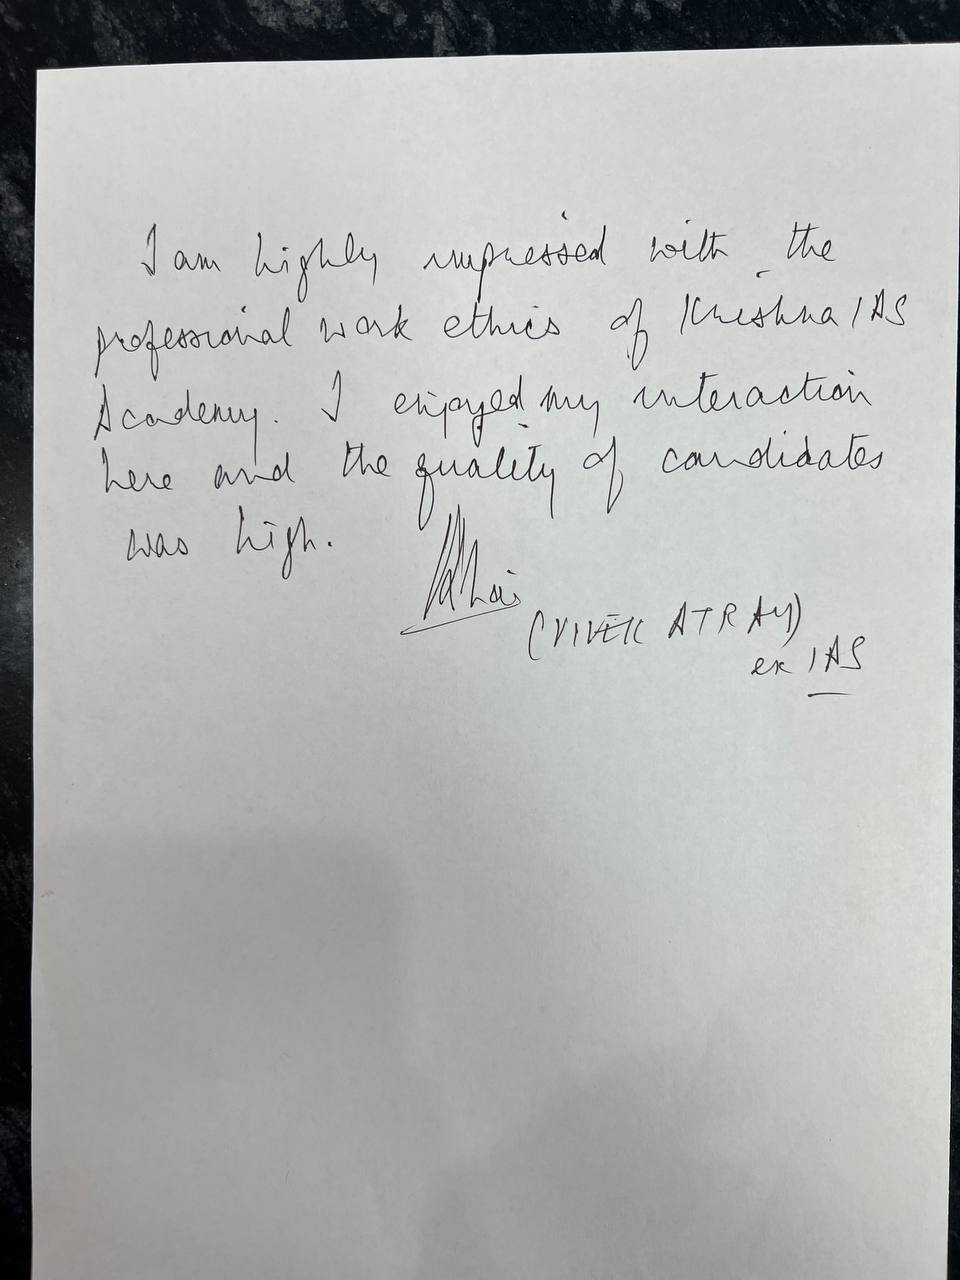 I am highly impressed with the
professional work ethics of Krishna IAS
Academy. I enjoyed my interaction
here and the quality of candidates
was high.
(VIVEK ATRAY)
ex IAS